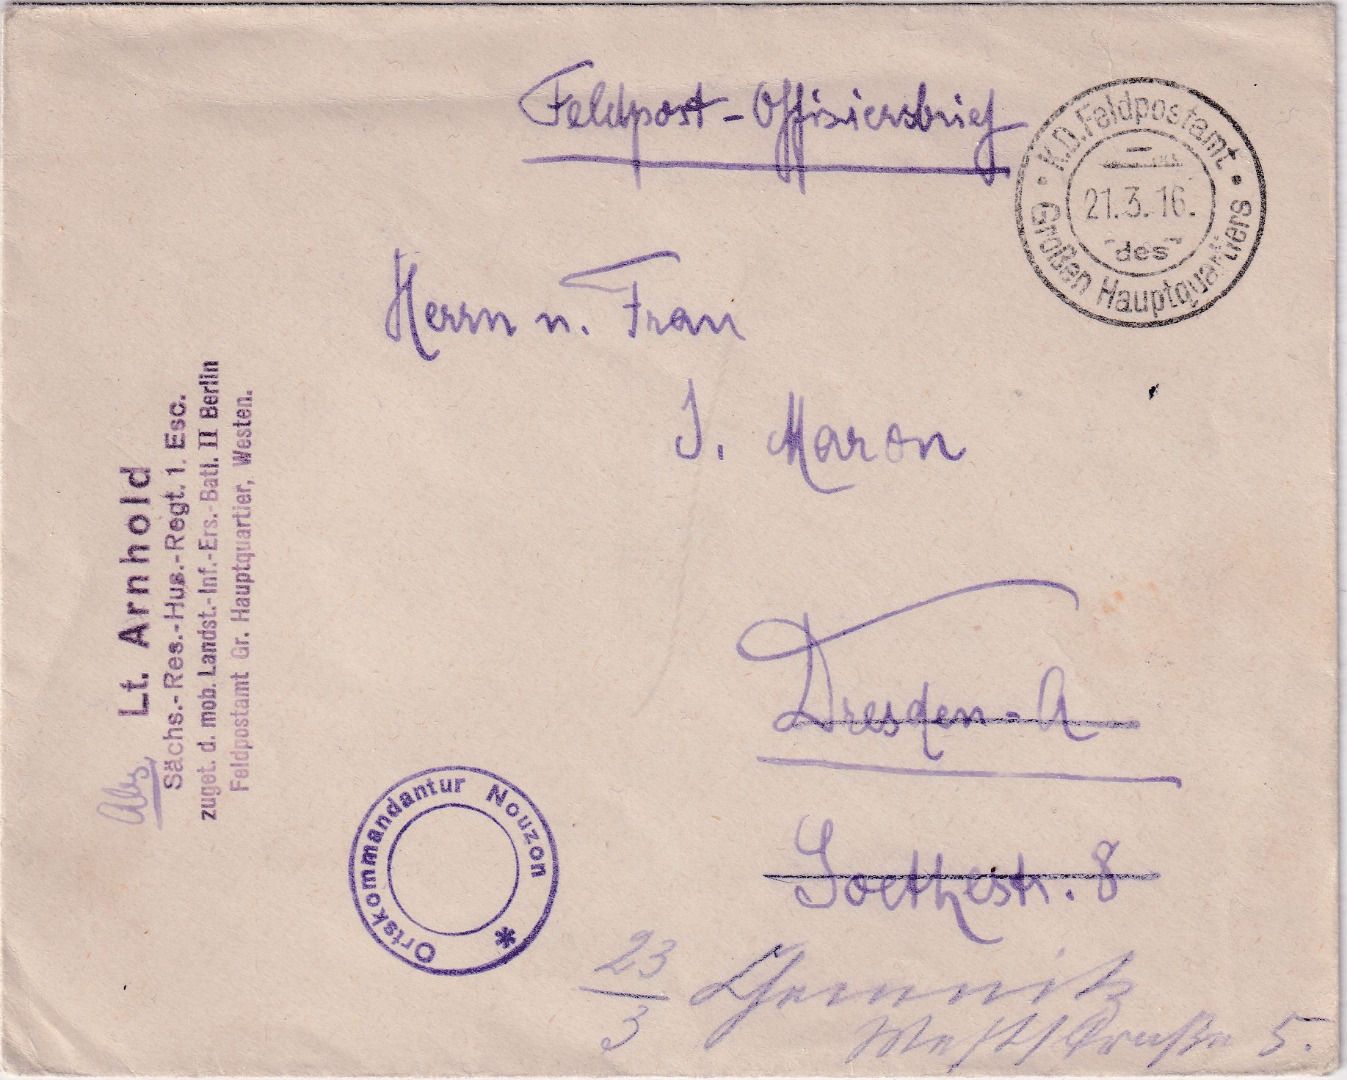 Feldpost-Offiziersbrief
K.D. Feldpostamt
21.3.16.
des
Großen Hauptquartiers
Herrn u. Frau
J. Maron
Dresden-A
Goethestr. 8
23/3 Chemnitz
Weststraße 5.
Abs.
Lt. Arnhold
Sächs.-Res.-Hus.-Regt. 1. Esc.
zuget. d. mob. Landst.-Inf.-Ers.-Batl. II Berlin
Feldpostamt Gr. Hauptquartier, Westen.
Ortskommandantur Nouzon *